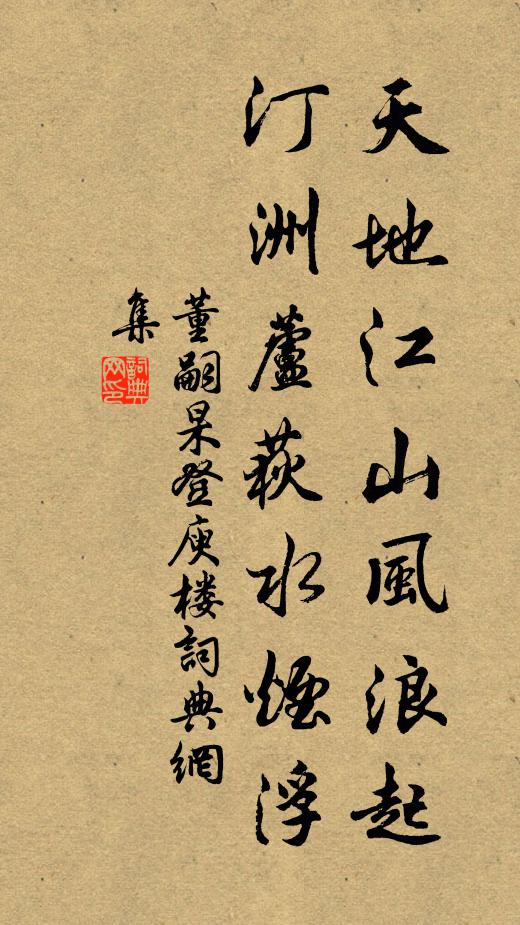 天地江山風浪起
汀洲蘆荻水煙浮
董嗣杲登庾楼詞典網
集
詞典
网印